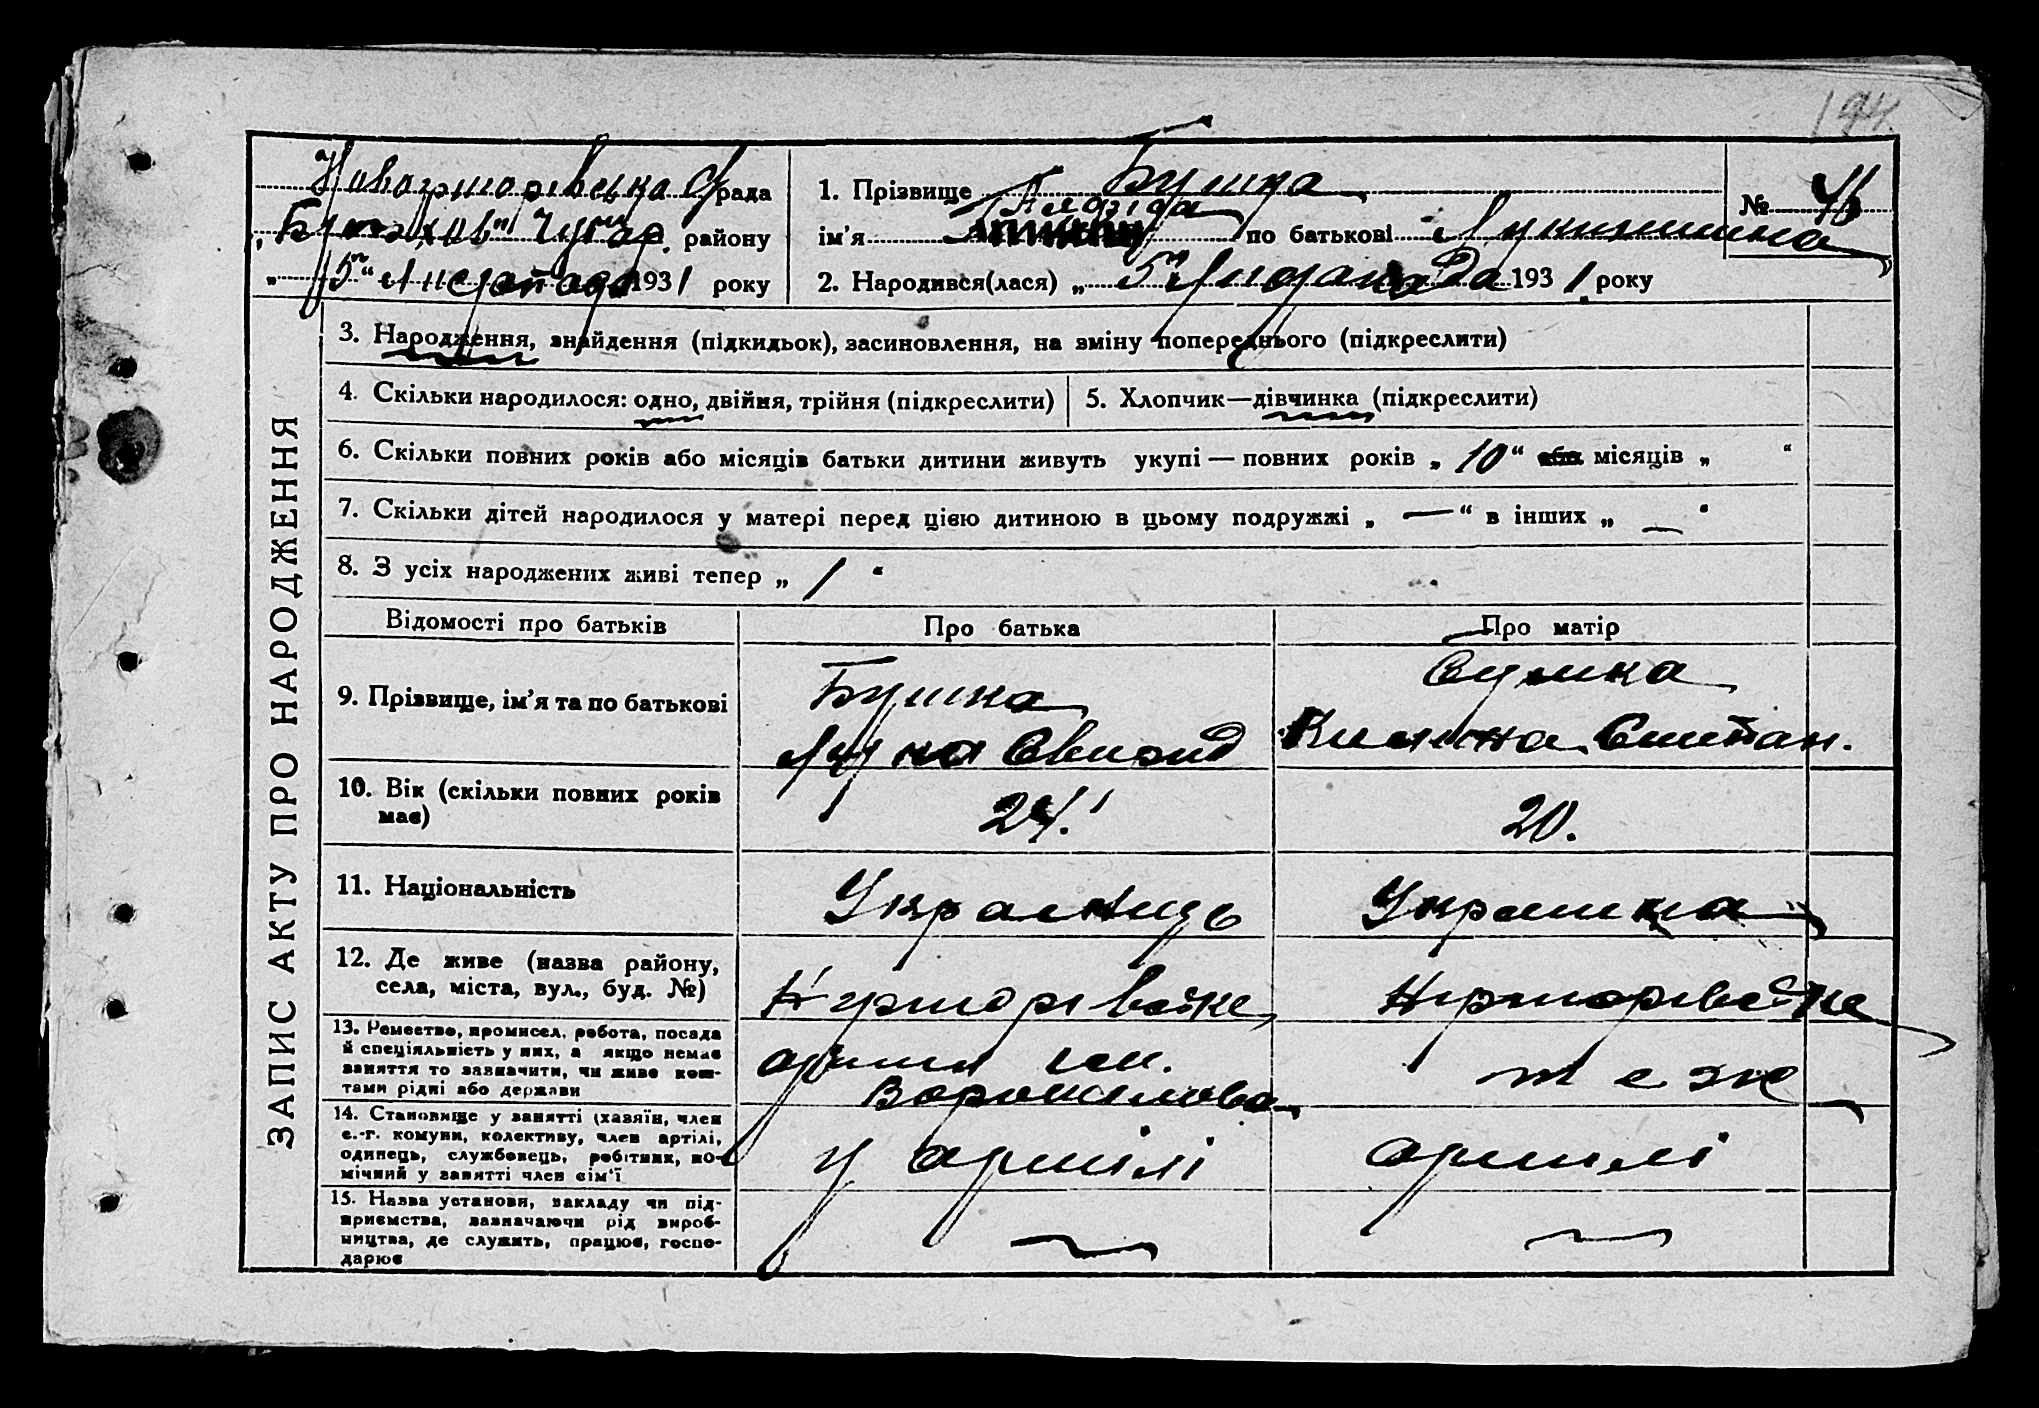 194
рада
району
"5" Листопада 1931 року
1. Прізвище Бушка
№
ім'я по батькові Лукинишна
2. Народився(лася) „5" Листопада 1931 року
ЗАПИС АКТУ ПРО НАРОДЖЕННЯ
3. Народження, знайдення (підкидьок), засиновлення, на зміну попереднього (підкреслити)
4. Скільки народилося: одно, двійня, трійня (підкреслити)
5. Хлопчик—дівчинка (підкреслити)
6. Скільки повних років або місяців батьки дитини живуть укупі — повних років „10“ або місяців „ “
7. Скільки дітей народилося у матері перед цією дитиною в цьому подружжі „ — “ в інших „ — “
8. З усіх народжених живі тепер „ 1 “
Відомості про батьків
Про батька
Про матір
9. Прізвище, ім'я та по батькові
Бушка
Лука
Сушка
10. Вік (скільки повних років
має)
24.
20.
11. Національність
Українець
Українка
12. Де живе (назва району,
села, міста, вул., буд. №)
13. Ремество, промисел, робота, посада
й спеціяльність у них, а якщо немає
заняття то зазначити, чи живе кош-
тами рідні або держави
артіл ім.
Ворошилова
теж
14. Становище у занятті (хазяїн, член
с.-г. комуни, колективу, член артілі,
одинець, службовець, робітник, по-
мічний у занятті член сім'ї
у артілі
артілі
15. Назва установи, закладу чи під-
приємства, зазначаючи рід вироб-
ництва, де служить, працює, госпо-
дарює